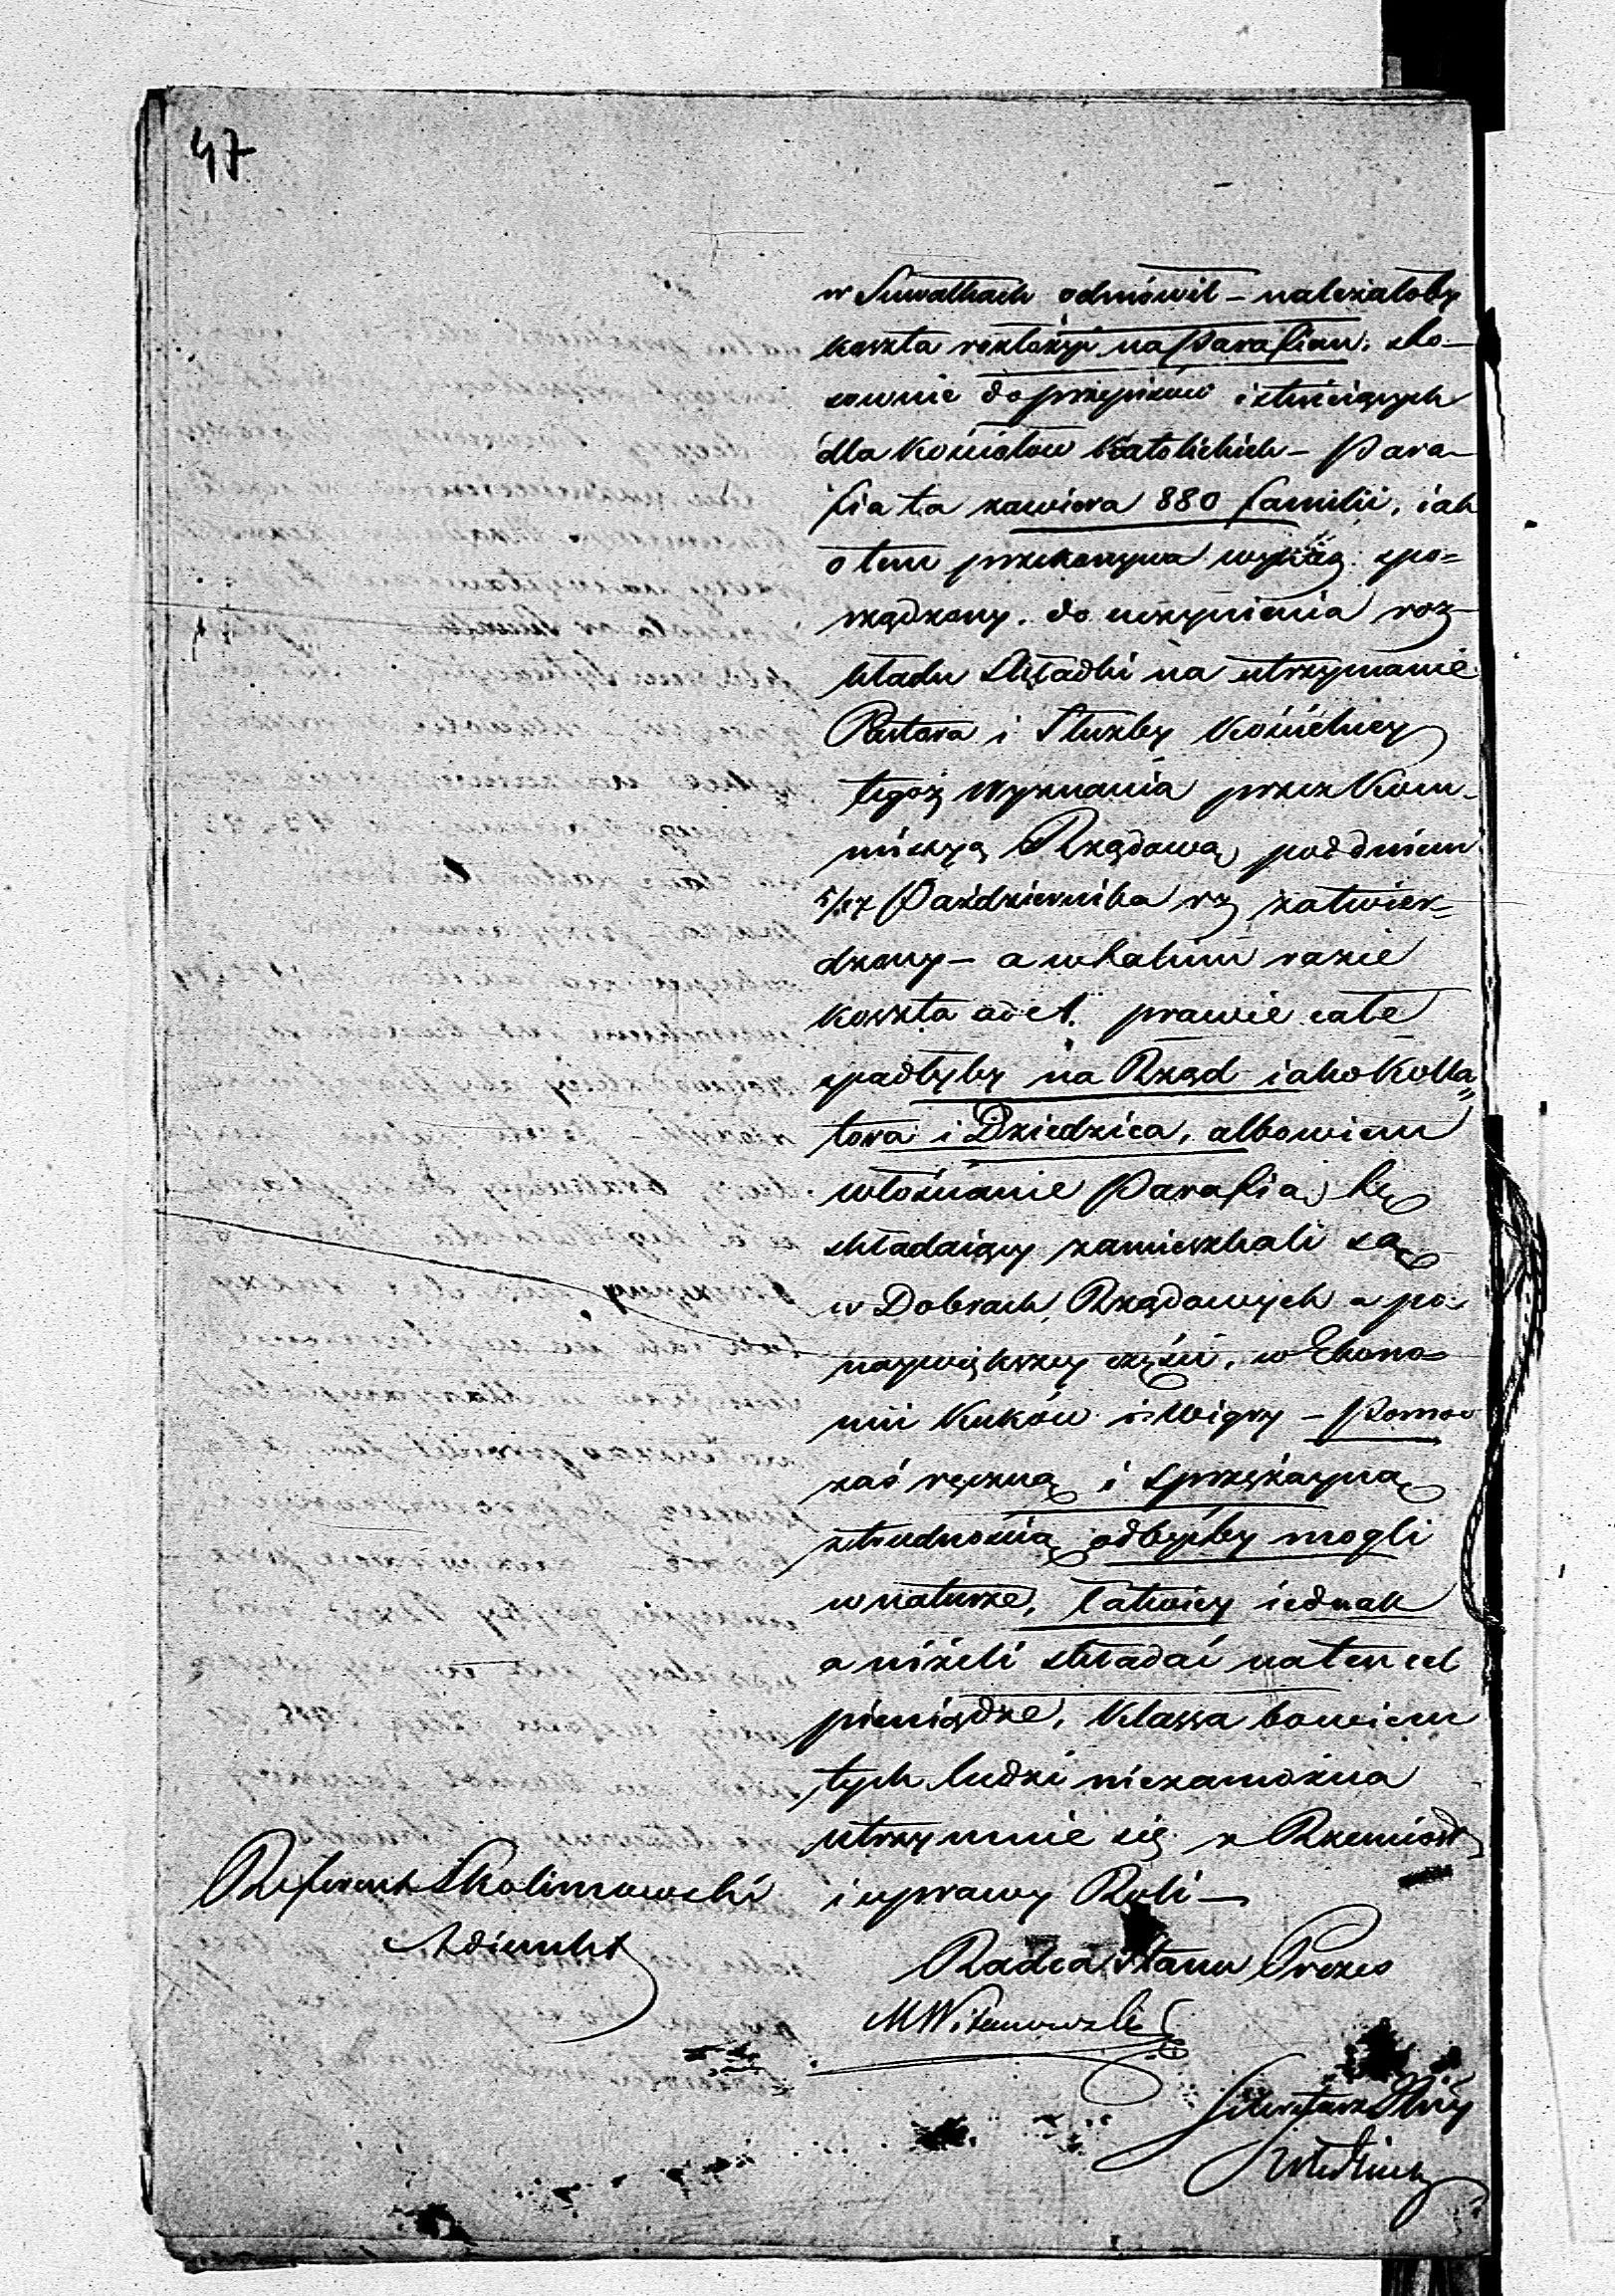 47
w Suwałkach odmówił – należałoby
koszta rozłożyć na Parafian, sto-
sownie do przepisów istnieiących
dla Kościołów Katolickich – Para-
fia ta zawiera 880 familii, iak
o tem przekonywa wykaz spo-
rządzony do uczynienia roz-
kładu Składki na utrzymanie
Pastora i Służby Kościelney
tegoż Wyznania przez Kom-
missyą Rządową pod dniem
5/17 Października rz zatwier-
dzony – a w takim razie
koszta ad 1. prawie całe
spadłyby na Rząd iako Kolla-
tora i Dziedzica, albowiem
włościanie Parafią tę
składaiący zamieszkali są
w Dobrach Rządowych a po
naywiększey części, w Ekono-
mii Kuków i Wigry – Pomoc
zaś ręczną i sprzężayną
z trudnością odbyćby mogli
w naturze, łatwiey iednak
aniżeli składać na ten cel
pieniądze, Klassa bowiem
tych ludzi niezamożna
utrzymuie się z Rzemiosł
i uprawy Roli –
Referent Skolimowski
Adiunkt
Radca Stanu Prezes
Sekretarz